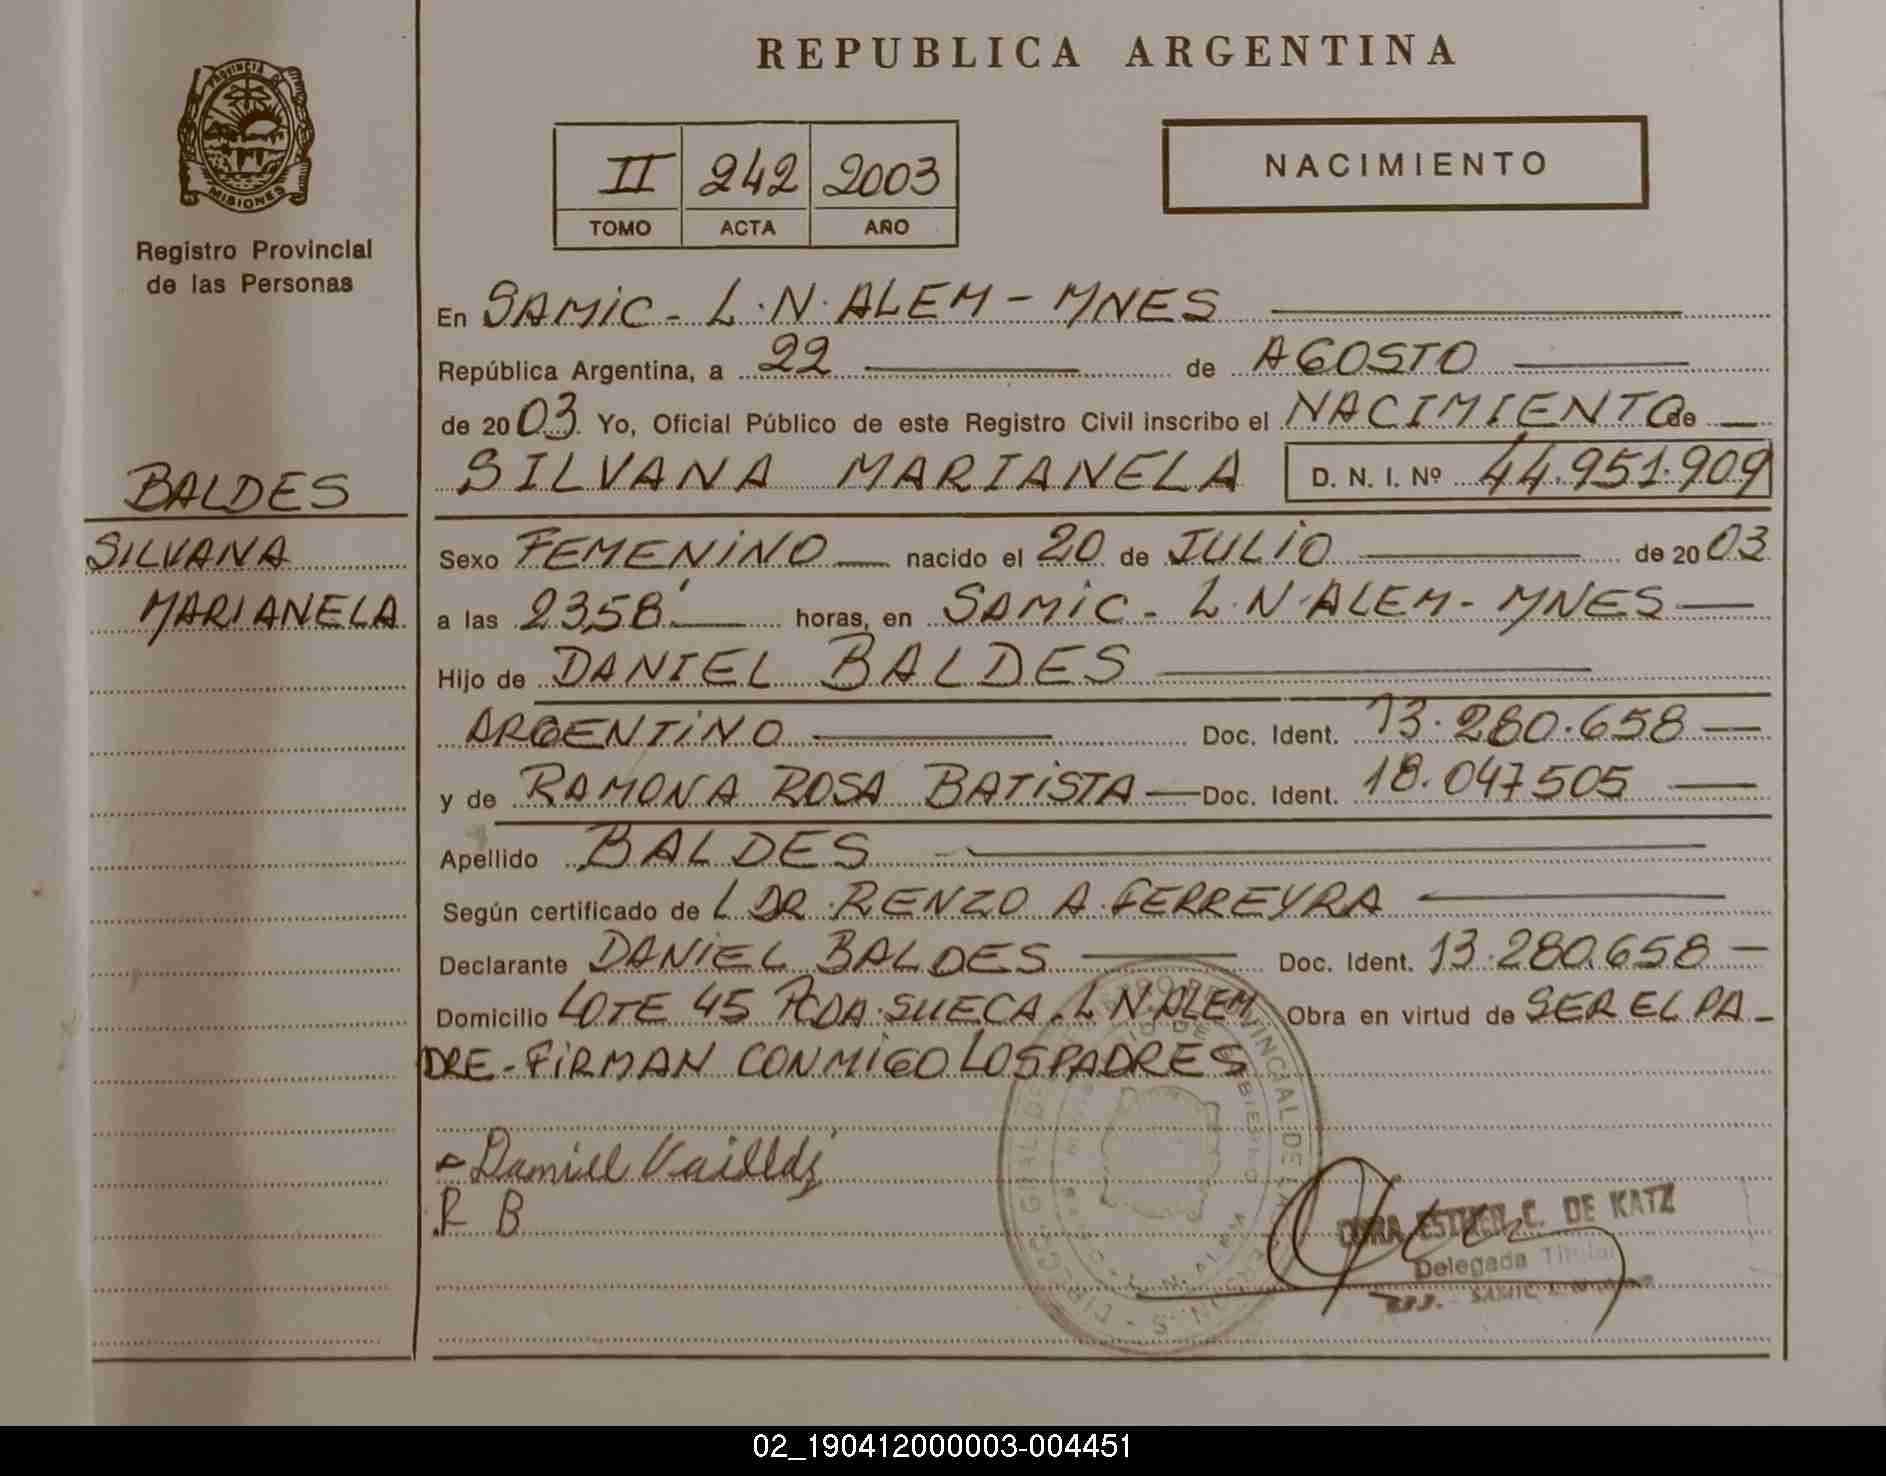 REPUBLICA ARGENTINA
PROVINCIA DE
MISIONES
Registro Provincial
de las Personas
II 242 2003
TOMO ACTA AÑO
NACIMIENTO
En SAMIC - L.N. ALEM - MNES
República Argentina, a 22 de AGOSTO
de 2003 Yo, Oficial Público de este Registro Civil inscribo el NACIMIENTO de
SILVANA MARIANELA D. N. I. Nº 44.951.909
BALDES
SILVANA
MARIANELA
Sexo FEMENINO nacido el 20 de JULIO de 2003
a las 23,58' horas, en SAMIC - L.N. ALEM - MNES
Hijo de DANIEL BALDES
ARGENTINO Doc. Ident. 13.280.658
y de RAMONA ROSA BATISTA Doc. Ident. 18.047505
Apellido BALDES
Según certificado de L DR. RENZO A. FERREYRA
Declarante DANIEL BALDES Doc. Ident. 13.280.658
Domicilio LOTE 45 PCDA. SUECA. L N. ALEM Obra en virtud de SER EL PA-
DRE - FIRMAN CONMIGO LOS PADRES
Daniel
R B
ESTHER C. DE KATZ
Delegada Titular
02_190412000003-004451